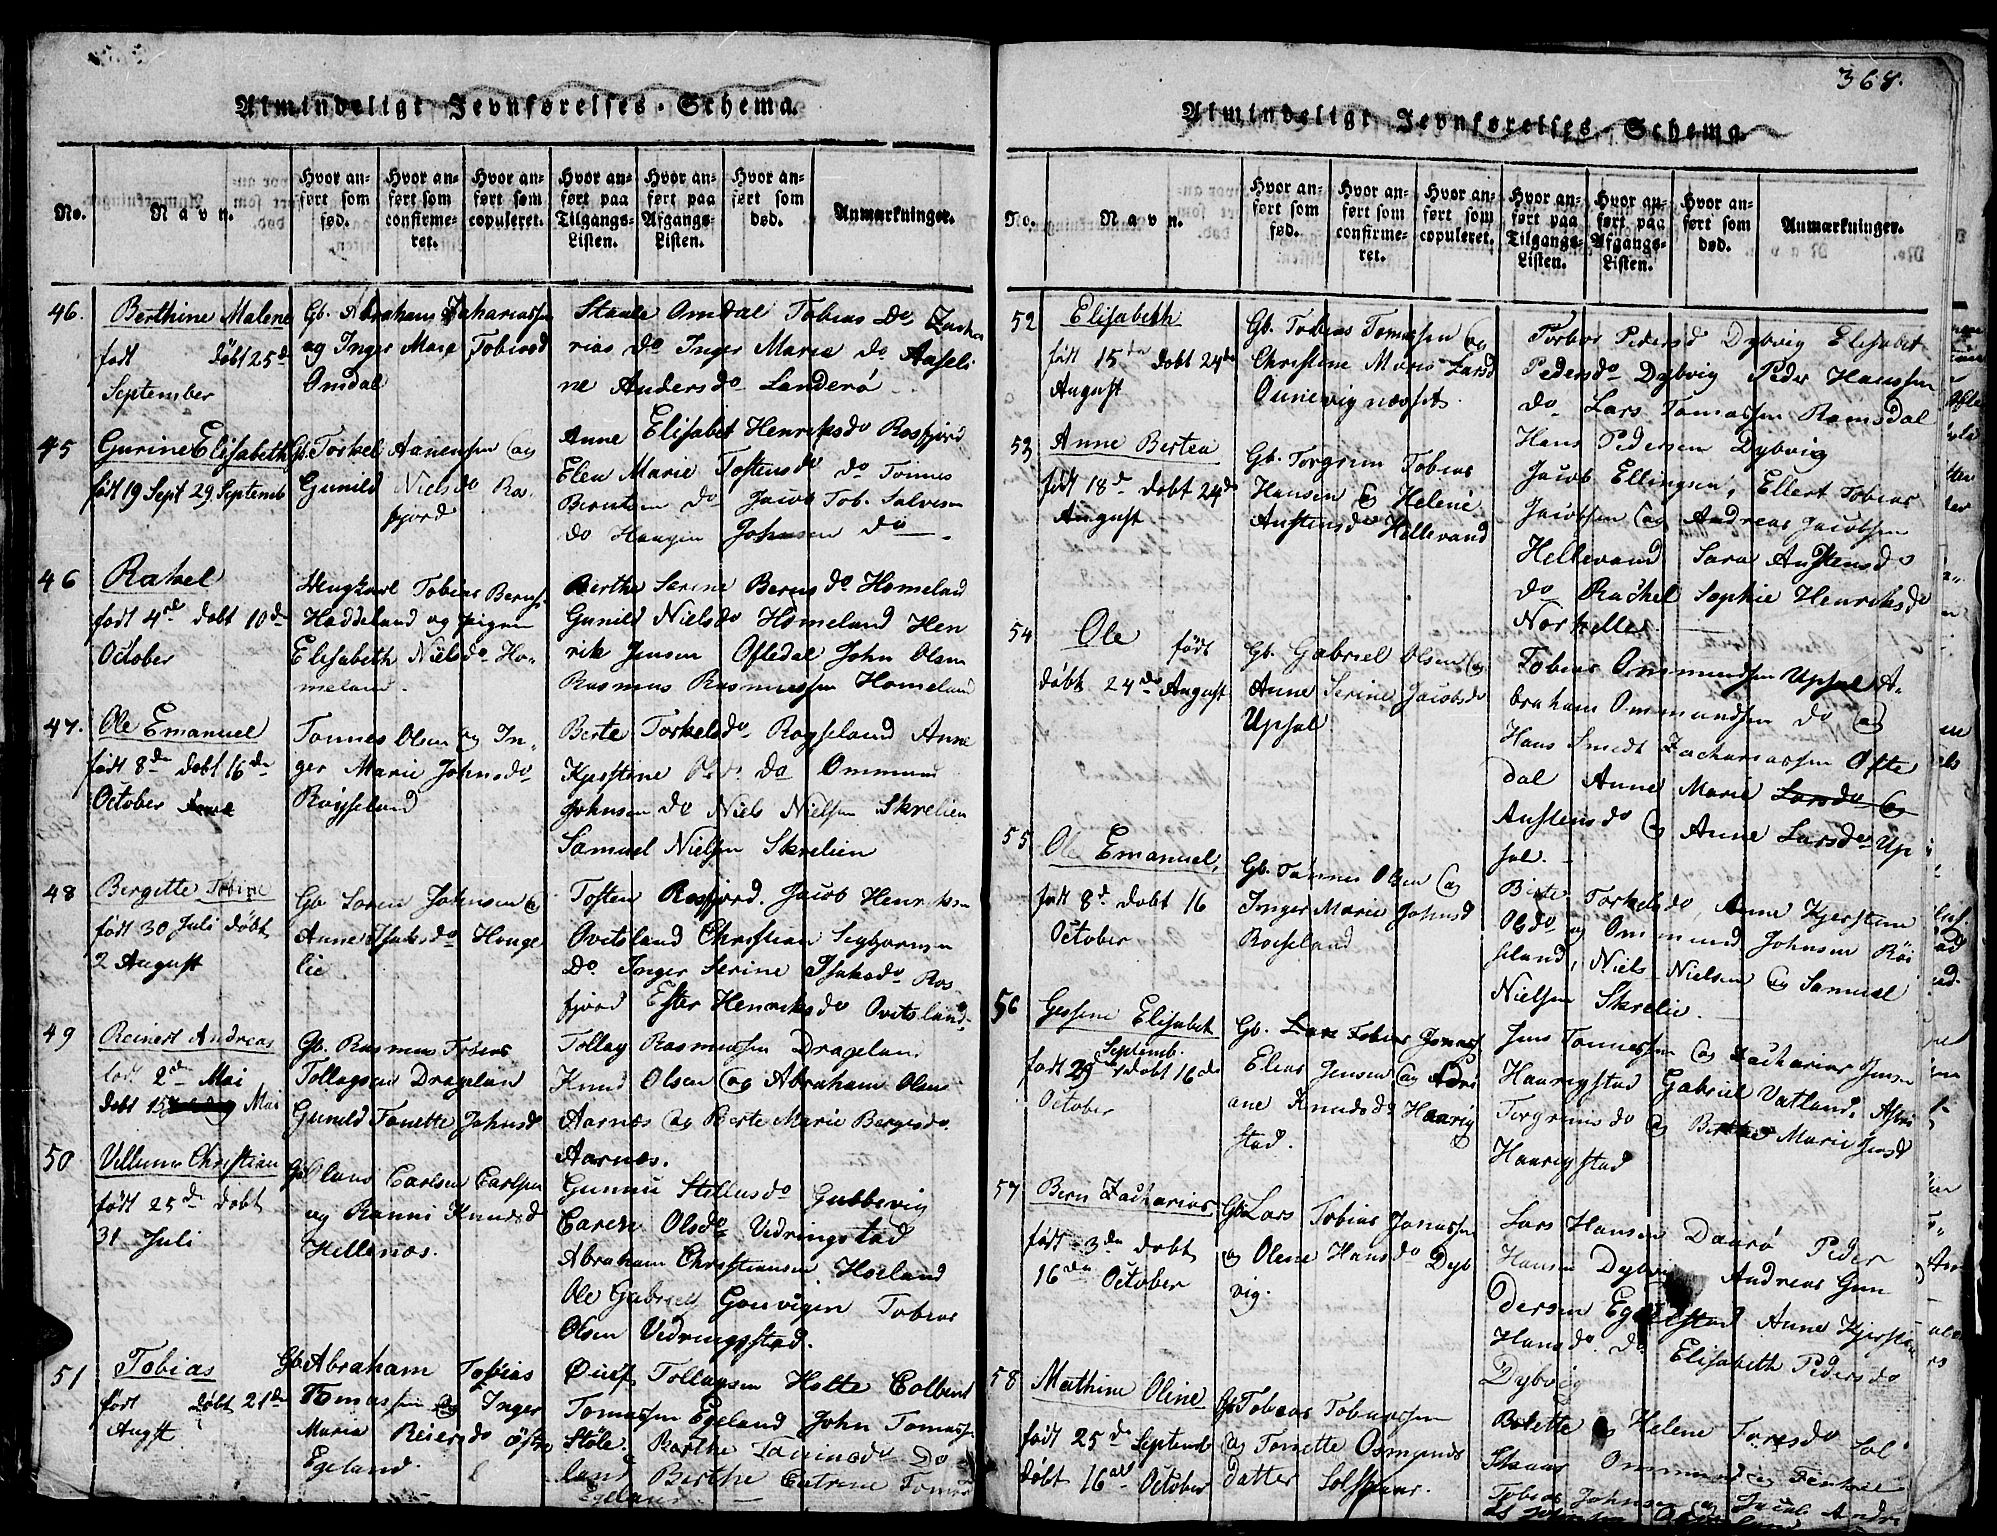 368.
Almindeligt Jevnførelses-Schema.
No.
Navn.
Hvor an-
ført som
fød.
Hvor an-
ført som
confirme-
ret.
Hvor an-
ført som
copuleret.
Hvor an-
ført paa
Tilgangs-
Listen.
Hvor an-
ført paa
Afgangs-
Listen.
Hvor an-
ført som
død.
Anmærkninger.
46.
Berthine Malene
født døbt 25de
September
Gb. Abraham Zachariassen
og Inger Marie Tobiasd
Omdal
Staale Omdal Tobias Do Zacha
rias do Inger Marie do Anseli
ne Andersdo Landerö
45
Gurine Elisabeth
født 19 Sept 29 Septemb
Gb. Torkel Aanensen og
Gunild Nielsdo Ros-
fjord
Anne Elisabet Henriksdo Rosfjord
Elen Marie Tostensdo do Tonnes
Berntsen do Jacob Tob. Salvesen
do Haagen Johnsen do
46
Rakel
født 4de dobt 10de
October
Ungkarl Tobias Bernts.
Haddeland og pigen
Elisabeth Nielsdo Ho-
meland.
Berthe Serine Berntsdo Homeland
Gunild Nielsdo Homeland Hen
rik Jensen Ofledal John Olsen
Rasmus Rasmussen Homeland
47.
Ole Emanuel
født 8de dobt 16de
October
Tonnes Olsen og In-
ger Marie Johnsdo
Röysseland
Berte Torkelsdo Roysseland Anne
Kjestene Olsd. do Ommund
Johnsen do Niels Nielsen Skrelien
Samuel Nielsen Skrelien
48
Bergitte Tobine
født 30 Juli døbt
2 August
Gb Soren Johnsen og
Anne Isaksdo Houge
lie.
Tosten Rosfjord. Jacob Henriksen
Ovitsland Christian Segbjornsen
Do. Inger Serine Isaksdo Ros
fjord Ester Henriksdo Ovitsland.
49
Reinert Andreas
fød. 2de Mai
døbt 15 Mai
Gb. Rasmus Tobias
Tollagsen Drageland
Gunild Tonette Johnsd
Tollag Rasmussen Drageland
Knud Olsen og Abraham Olsen
Aarnes og Berte Marie Bergesdo.
Aarnes.
50
Villum Christian
født 25de dobt
31 Juli
Gb Olaus Carlsen Carlsen
og Ranni Knudsd
Hellenes.
Gunnil Stellusdo Gubbevig
Caren Olsdo Vedringstad
Abraham Christiansen Horland
Ole Gabriel Gouvigen Tobias
Olsen Vedringstad.
51
Tobias
født døbt 21de
Augst
Gb Abraham Tobias
Tomassen og Inger
Maria Reiersdo Öster
Egeland.
Oluf Tollagsen Holte Colbent
Tomassen Egeland John Tomassen
Støle. Berthe Do
land Berthe Catrine
Egeland

Almindeligt Jevnførelses-Schema.
No.
Navn.
Hvor an-
ført som
fød.
Hvor an-
ført som
confirme-
ret.
Hvor an-
ført som
copuleret.
Hvor an-
ført paa
Tilgangs-
Listen.
Hvor an-
ført paa
Afgangs-
Listen.
Hvor an-
ført som
død.
Anmærkninger.
52
Elisabeth
født 15de dobt 24de
August
Gb. Tobias Tomassen og
Christene Marie Larsd
Ounevignæsset.
Torbor Pedersd Dybvig Elisabet
Pedersdo Dybvig Peder Hanssen
do Lars Tomassen Ramsdal
53
Anne Bertea
født 18de dobt 24de
August
Gb. Torgrim Tobias
Hansen og Helene
Austensdo Hellevand
Hans Pedersen Dybvig
Jacob Ellingsen, Ellert Tobias
Jacobsen og Andreas Jacobsen
Hellevand Sara Austensdo
do Rachel Sophie Henriksdo
Norkelles.
54
Ole født
døbt 24de August
Gb. Gabriel Olsen og
Anne Serine Jacobsdo
Upsal
Tobias Ommundsen Upsal A-
braham Ommundsen do og
Hans Smedt Zachariassen Ofte
dal Anne Marie Larsdo og
Austensdo og Anne Larsdo Up
sal.
55
Ole Emanuel,
født 8de dobt 16
October
Gb. Tønnes Olsen og
Inger Marie Johnsd
Roiseland
Birte Torkelsdo, Anne Kjerstine
Olsdo og Ommund Johnsen Röi
seland, Niels Nielsen og Samuel
Nielsen Skrelie.
56
Gessine Elisabet
født 29 Septemb. dobt 16de
October
Gb. Tobias Jonass
Elias Jensen og Adri
ane Knudsdo Haarig
stad.
Jens Tonnessen og Zacharias Jensen
Haarigstad Gabriel Vatland. Astri
Torgrimsdo og Berthe Marie Jensd
Haarigstad
57
Bern Zacharias
født 3de dobt
16de October
Gb Lars Tobias Jonassen
og Olene Hansdo Dyb
vig.
Lars Hansen Daarö Peder
Hansen Dybvig Andreas Gun
dersen Egelstad Anne Kjersten
Hansdo. do Elisabeth Pedersdo
Dybvig
58
Mathine Oline
født 25de Septemb
døbt 16de October
Gb Tobias Tobiassen
og Tonette Osmunds
datter Solstaar.
Bolette og Helene Toresdo Sol
Staar Ommund og
Tobias Johnsen og Jacob Andr